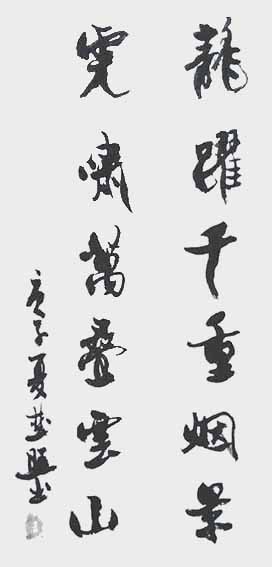 龍躍千重烟景
虎嘯萬疊雲山
庚子夏